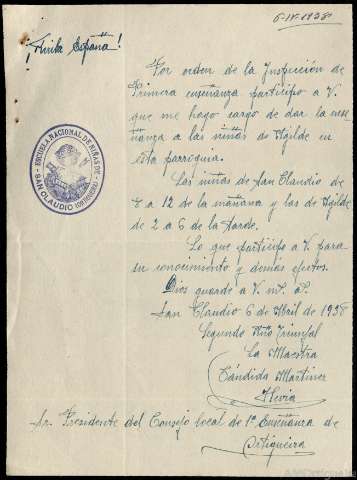 6-IV-1938
¡Arriba España!
Por orden de la Inspección de
Primera enseñanza participo a V.
que me hago cargo de dar la ense-
ñanza a las niñas de
esta parroquia.
Las niñas de San Claudio de
a 12 de la mañana y las de
de 2 a 6 de la tarde.
Lo que participo a V para
su conocimiento y demás efectos.
Dios guarde a V. m. a.
San Claudio 6 de Abril de 1938
Segundo Año Triunfal
La Maestra
Cándida Martínez
Hevia
Sr. Presidente del Consejo local de 1ª Enseñanza de
Ortigueira
ESCUELA NACIONAL DE NIÑAS DE
SAN CLAUDIO (ORTIGUEIRA)